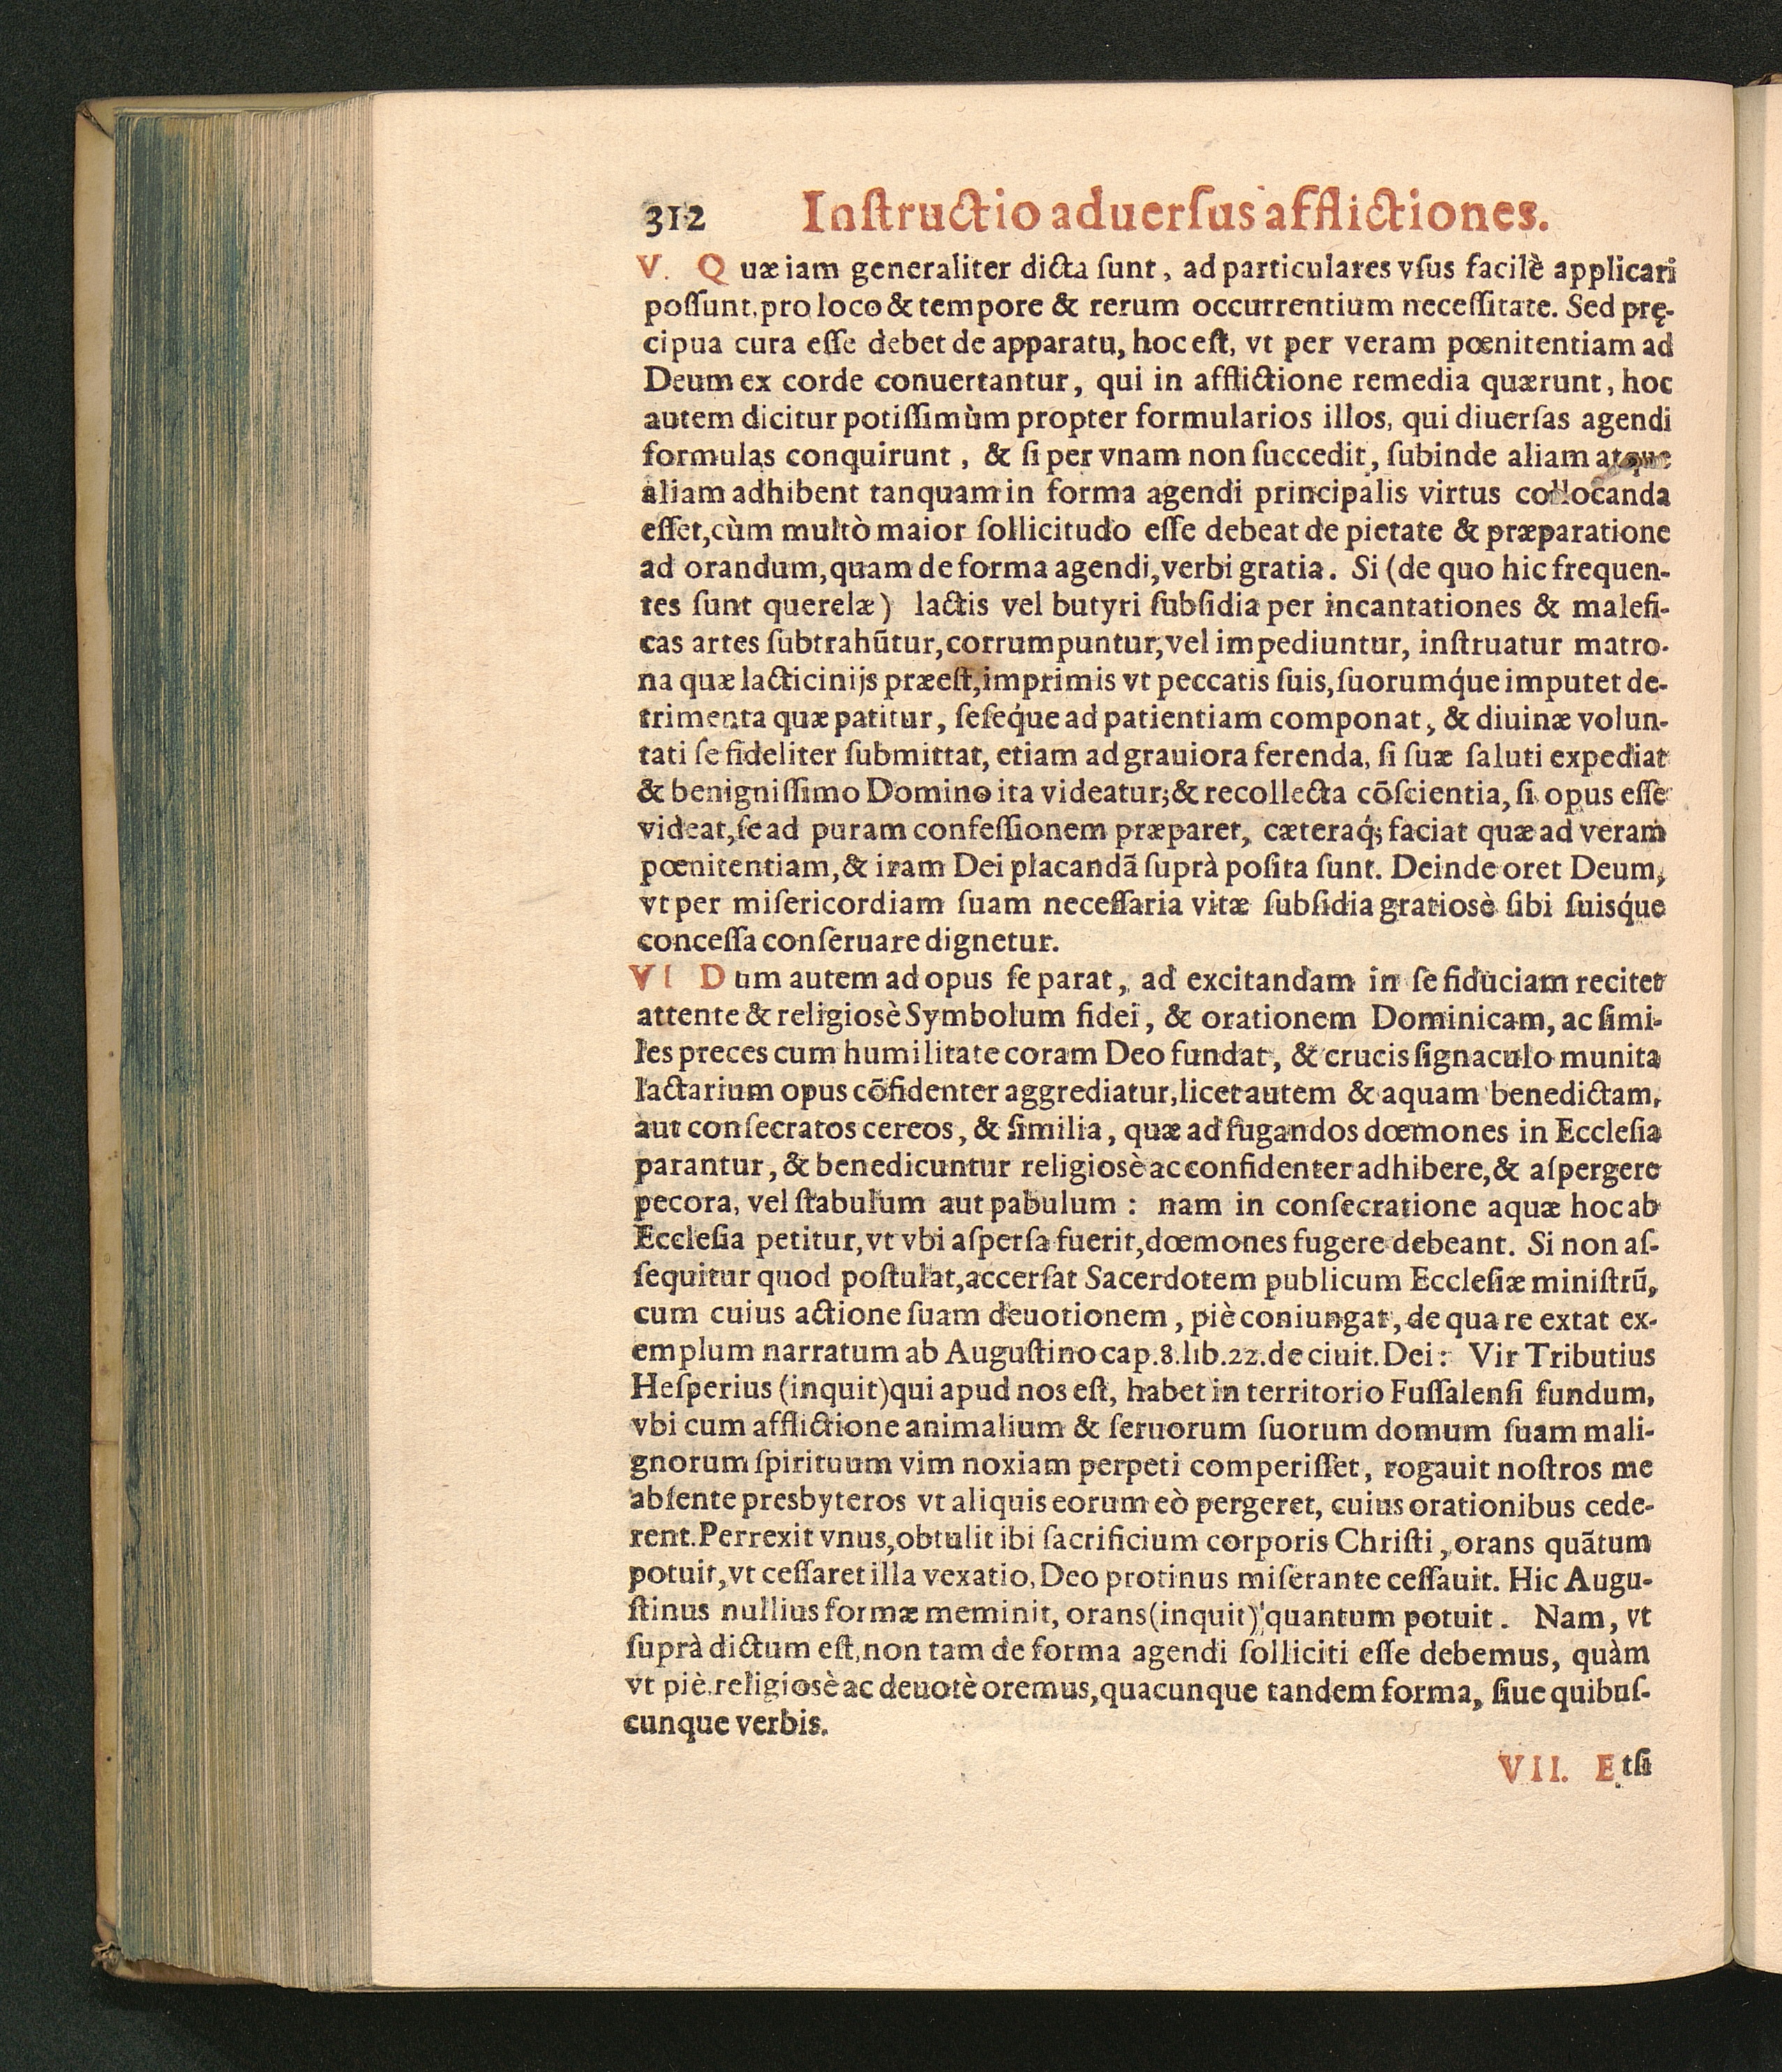 312 Inſtructio aduerſus afflictiones.
V. Quæ iam generaliter dicta ſunt, ad particulares vſus facilè applicari
poſſunt, pro loco & tempore & rerum occurrentium neceſſitate. Sed prę-
cipua cura eſſe debet de apparatu, hoc eſt, vt per veram pœnitentiam ad
Deum ex corde conuertantur, qui in afflictione remedia quærunt, hoc
autem dicitur potiſſimùm propter formularios illos, qui diuerſas agendi
formulas conquirunt, & ſi per vnam non ſuccedit, ſubinde aliam atque
aliam adhibent tanquam in forma agendi principalis virtus collocanda
eſſet, cùm multò maior ſollicitudo eſſe debeat de pietate & præparatione
ad orandum, quam de forma agendi, verbi gratia. Si (de quo hic frequen-
tes ſunt querelæ) lactis vel butyri ſubſidia per incantationes & malefi-
cas artes ſubtrahũtur, corrumpuntur, vel impediuntur, inſtruatur matro-
na quæ lacticinijs præeſt, imprimis vt peccatis ſuis, ſuorumq́ue imputet de-
trimenta quæ patitur, ſeſeq́ue ad patientiam componat, & diuinæ volun-
tati ſe fideliter ſubmittat, etiam ad grauiora ferenda, ſi ſuæ ſaluti expediat
& benigniſſimo Domino ita videatur; & recollecta cõſcientia, ſi opus eſſe
videat, ſe ad puram confeſſionem præparet, cæteraq́; faciat quæ ad veram
pœnitentiam, & iram Dei placandã ſuprà poſita ſunt. Deinde oret Deum,
vt per miſericordiam ſuam neceſſaria vitæ ſubſidia gratiosè ſibi ſuisq́ue
conceſſa conſeruare dignetur.
VI Dum autem ad opus ſe parat, ad excitandam in ſe fiduciam recitet
attente & religiosè Symbolum fidei, & orationem Dominicam, ac ſimi-
les preces cum humilitate coram Deo fundat, & crucis ſignaculo munita
lactarium opus cõfidenter aggrediatur, licet autem & aquam benedictam,
aut conſecratos cereos, & ſimilia, quæ ad fugandos dœmones in Eccleſia
parantur, & benedicuntur religiosè ac confidenter adhibere, & aſpergere
pecora, vel ſtabulum aut pabulum: nam in conſecratione aquæ hoc ab
Eccleſia petitur, vt vbi aſperſa fuerit, dœmones fugere debeant. Si non aſ-
ſequitur quod poſtulat, accerſat Sacerdotem publicum Eccleſiæ miniſtrũ,
cum cuius actione ſuam deuotionem, piè coniungat, de qua re extat ex-
emplum narratum ab Auguſtino cap.8.lib.22.de ciuit.Dei: Vir Tributius
Heſperius (inquit) qui apud nos eſt, habet in territorio Fuſſalenſi fundum,
vbi cum afflictione animalium & ſeruorum ſuorum domum ſuam mali-
gnorum ſpirituum vim noxiam perpeti comperiſſet, rogauit noſtros me
abſente presbyteros vt aliquis eorum eò pergeret, cuius orationibus cede-
rent. Perrexit vnus, obtulit ibi ſacrificium corporis Chriſti, orans quãtum
potuit, vt ceſſaret illa vexatio, Deo protinus miſerante ceſſauit. Hic Augu-
ſtinus nullius formæ meminit, orans (inquit) quantum potuit. Nam, vt
ſuprà dictum eſt, non tam de forma agendi ſolliciti eſſe debemus, quàm
vt piè, religiosè ac deuotè oremus, quacunque tandem forma, ſiue quibuſ-
cunque verbis.
VII. Etſi